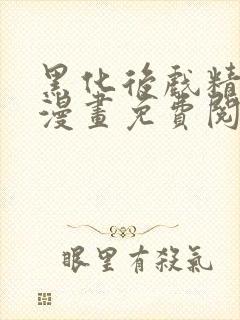 黑化後戲精
漫畫免費閱
眼里有殺氣